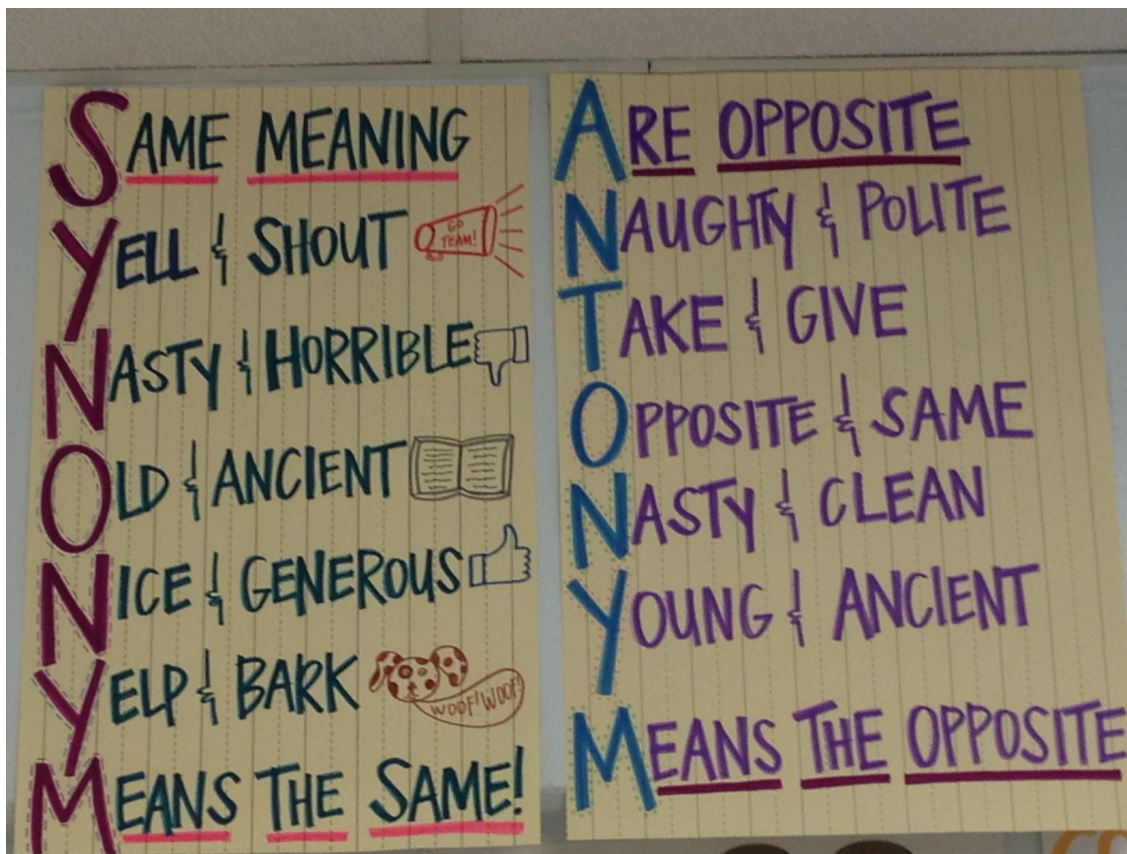 SAME MEANING
YELL & SHOUT
GO
TEAM!
NASTY & HORRIBLE
OLD & ANCIENT
NICE & GENEROUS
YELP & BARK
WOOF! WOOF!
MEANS THE SAME!
ARE OPPOSITE
NAUGHTY & POLITE
TAKE & GIVE
OPPOSITE & SAME
NASTY & CLEAN
YOUNG & ANCIENT
MEANS THE OPPOSITE